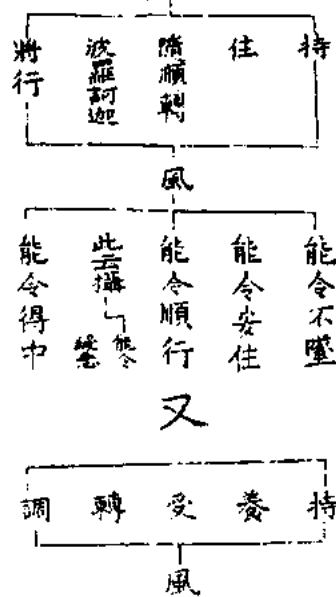 持
住
隨順轉
波羅訶迦
將行
風
能令不墜
能令安住
能令順行
此云攝
能令
能令得中
又
持
養
受
轉
調
風